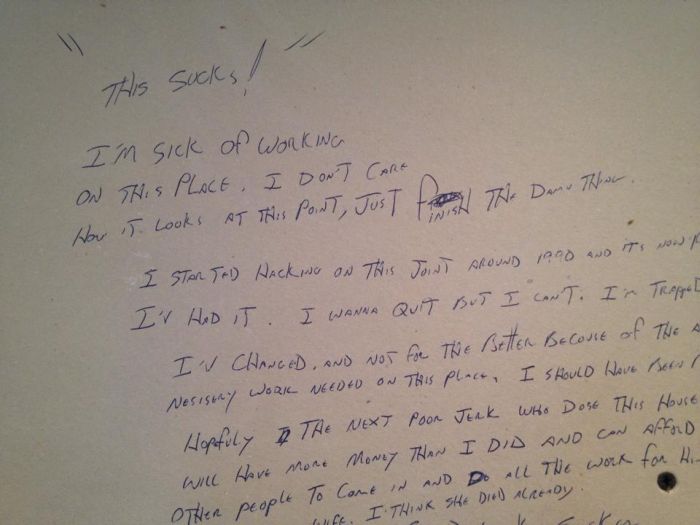 "THIS SUCKS!"
I'M SICK OF WORKING
ON THIS PLACE. I DON'T CARE
HOW IT LOOKS AT THIS POINT, JUST FINISH THE DAMN THING.
I STARTED HACKING ON THIS JOINT AROUND 1990 AND ITS NOW
I'V HAD IT. I WANNA QUIT BUT I CAN'T. I'M TRAPPED
I'V CHANGED, AND NOT FOR THE BETTER BECOUSE OF THE
NESISERY WORK NEEDED ON THIS PLACE, I SHOULD HAVE BEEN
HOPEFULY THE NEXT POOR JERK WHO DOSE THIS HOUSE
WILL HAVE MORE MONEY THAN I DID AND CAN AFFORD
OTHER PEOPLE TO COME IN AND DO ALL THE WORK FOR
WIFE. I THINK SHE DIED ALREADY.